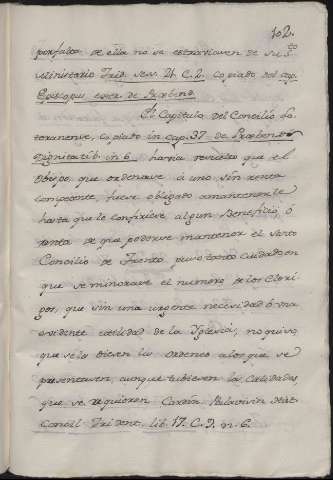 102.
por falta de ella no se extraviasen de su S.to
Ministerio Trid. sess. 21. C. 2. copiado del cap.
Episcopus extr. de Præbend.
El Capitulo del Concilio La-
teranense, copiado in cap. 37. de Præbend.
Dignitatib. in 6. havia resuelto que el
Obispo, que ordenase á uno sin renta
competente, fuese obligado á mantenerle
hasta que le confiriese algun Beneficio, ó
renta de que poderse mantener el Santo
Concilio de Trento puso tanto cuidado en
que se minorase el numero de los Cleri-
gos, que sin una urgente necesidad ó
evidente utilidad de la Iglesia, no quiso
que se la diesen las ordenes a los que se
presentasen, aunque tubiesen las Calidades,
que se requieren Cardin Palavicin
Concil Trident. lib. 17. C. 9. n. 6.